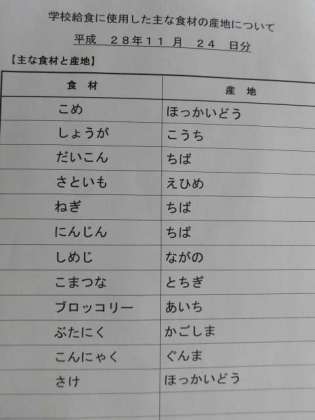 学校給食に使用した主な食材の産地について
平成 28年11月 24 日分
【主な食材と産地】
食材 産地
こめ ほっかいどう
しょうが こうち
だいこん ちば
さといも えひめ
ねぎ ちば
にんじん ちば
しめじ ながの
こまつな とちぎ
ブロッコリー あいち
ぶたにく かごしま
こんにゃく ぐんま
さけ ほっかいどう